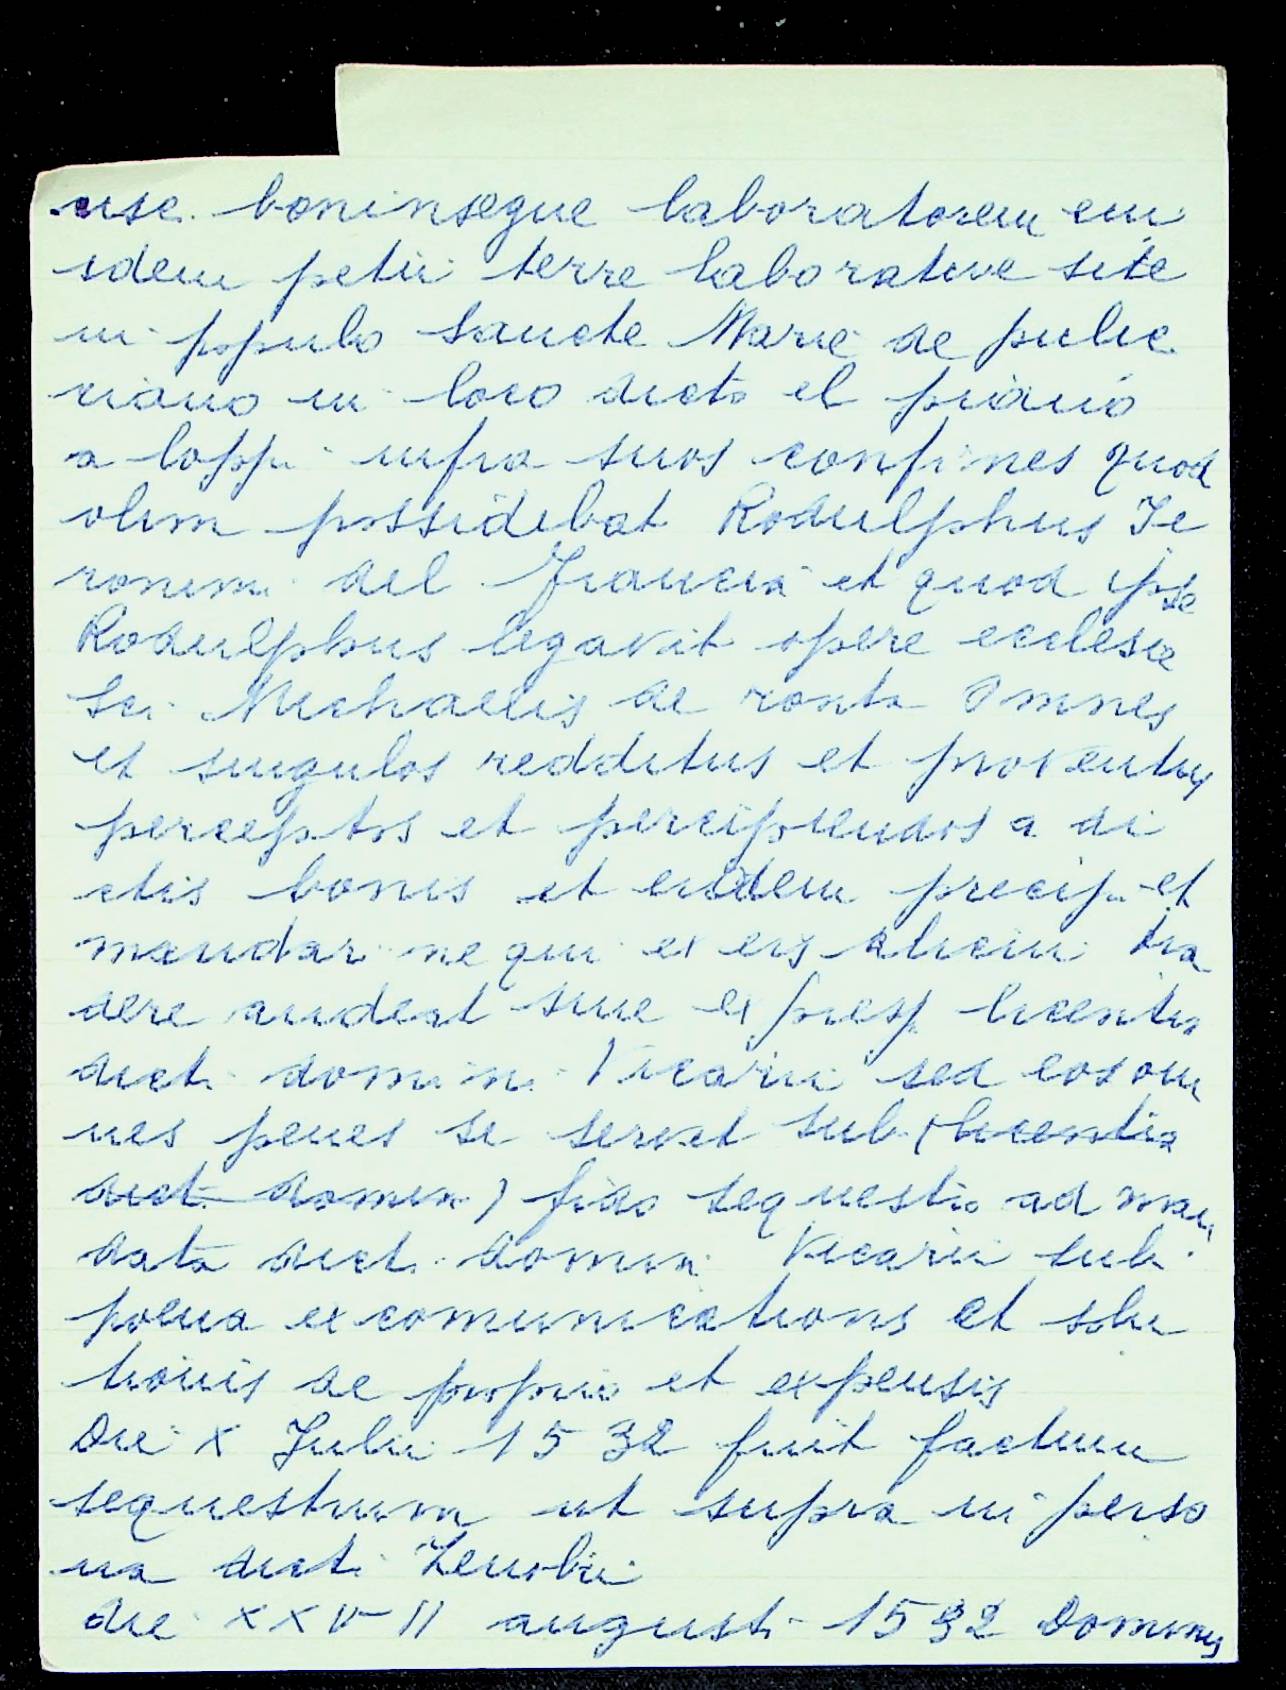 use. boninsegne laboratorem eiu
sdem petii terre laborative site
in populo Sancte Marie de pulic
ciano in loco dicto el piano
a loppi infra suos confines quod
olim possidebat Rodulphus Je
ronimi del Francia et quod ipse
Rodulphus legavit opere ecclesie
Sci Michaelis de ronta omnes
et singulos redditus et proventus
perceptos et percipiendos a di
ctis bonis et eidem precip. et
mandar. ne qui ex eis alicui tra
dere audeat sine expresp. licentia
dicti domini Vicarii sed eos om
nes penes se servet sub (licentia
dict. domin) fido sequestro ad man
data dicti domini Vicarii sub
poena excomunicationis et solu
tionis de proprio et expensis
Die X Julii 1532 fuit factum
sequestrum ut supra in perso
na dicti Zenobii
die XXVII augusti 1532 Dominus